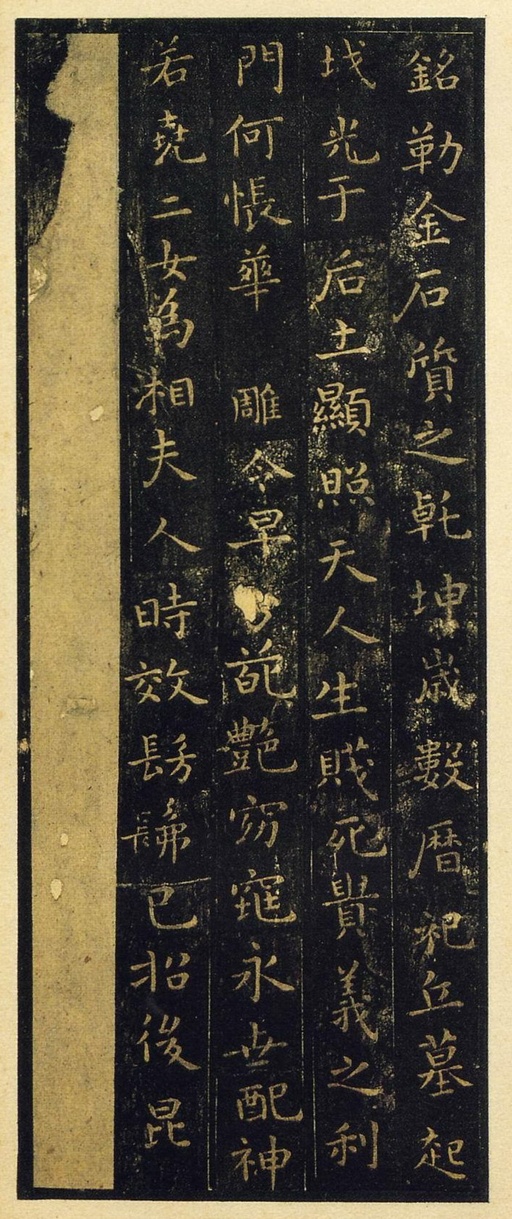 銘勒金石質之乹坤歲數曆祀丘墓起
坟光于后土顯照天人生賤死貴義之利
門何悵華雕令早葩艷窈窕永世配神
若堯二女為相夫人時效髣髴㠯招後昆